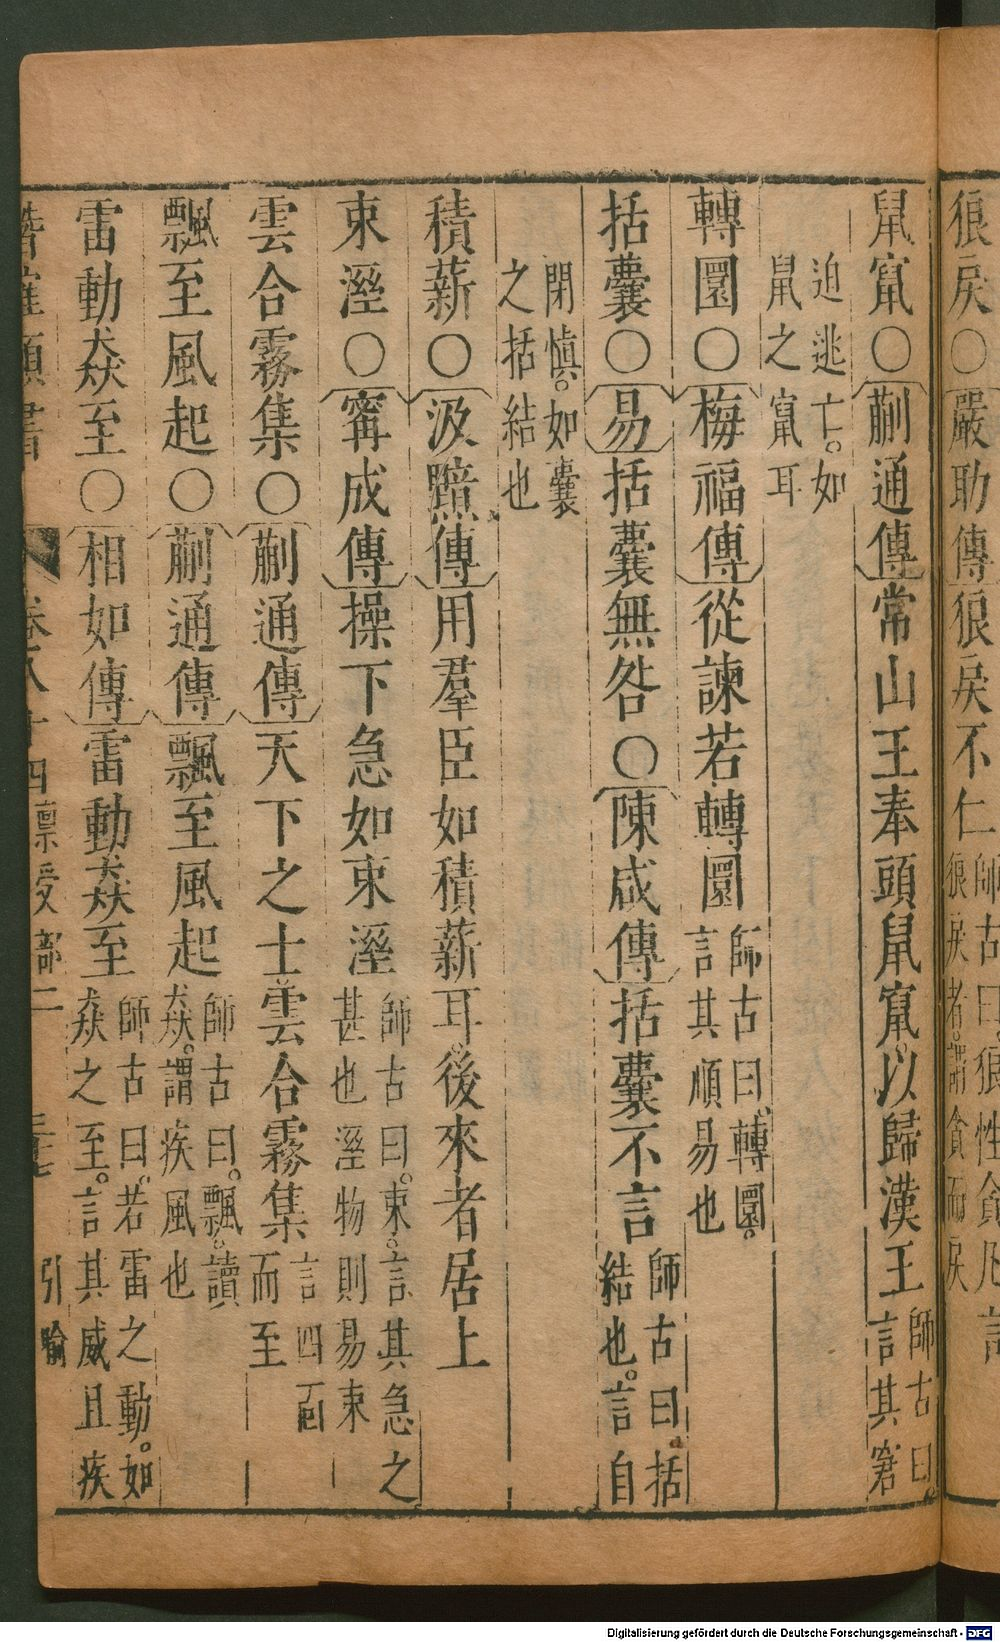 狼戾○嚴助傳狼戾不仁師古曰狼性貪凡言狼戾者謂貪而戾
鼠竄○蒯通傳常山王奉頭鼠竄以歸漢王師古曰言其窘
迫逃亡如鼠之竄耳
轉圜○梅福傳從諫若轉圜師古曰轉圜言其順易也
括囊○易括囊無咎○陳咸傳括囊不言師古曰括結也言自
閉慎如囊之括結也
積薪○汲黯傳用羣臣如積薪耳後來者居上
束溼○甯成傳操下急如束溼師古曰束言其急之甚也溼物則易束
雲合霧集○蒯通傳天下之士雲合霧集言四面而至
飄至風起○蒯通傳飄至風起師古曰飄讀猋謂疾風也
雷動猋至○相如傳雷動猋至師古曰若雷之動如猋之至言其威且疾
卷八十四稟受部二 引喻
Digitalisierung gefördert durch die Deutsche Forschungsgemeinschaft - DFG